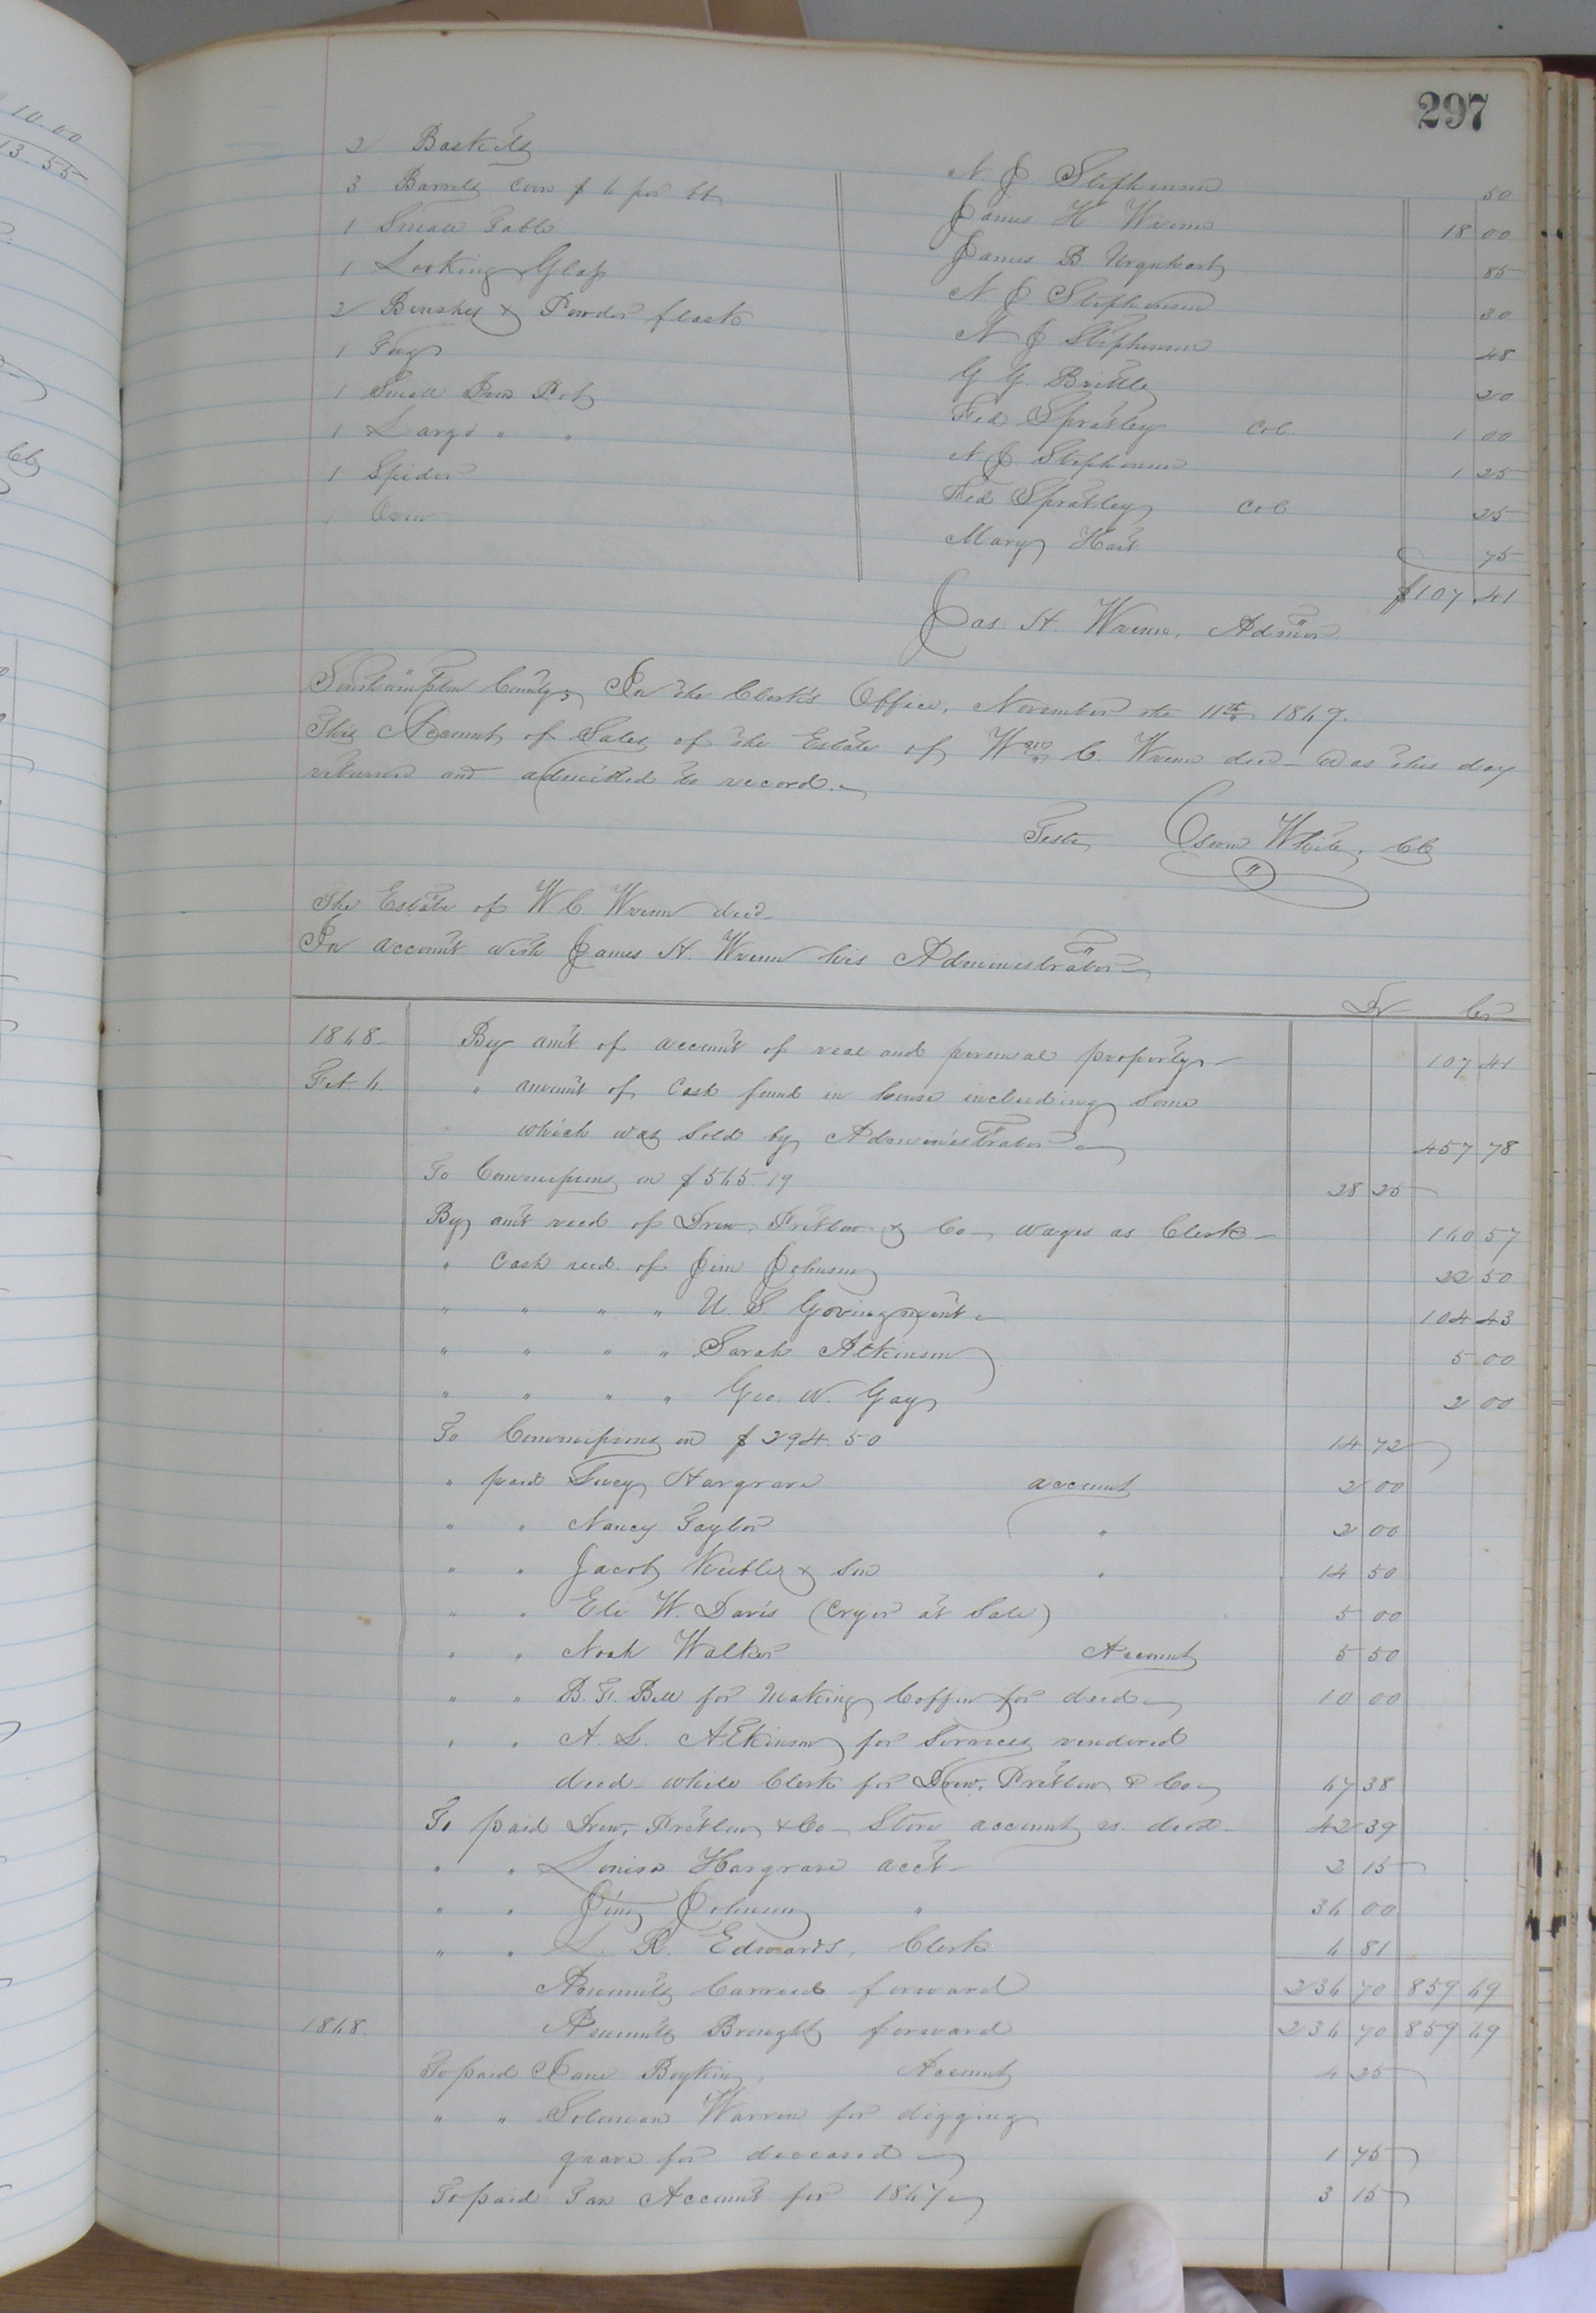 297
2 Baskets N. J Stephenson 50
3 Barrels Corn $6 per bb James H Wrenn 18 00
1 Small Table James B Urquhart 85
1 Looking Glass N J Stephenson 30
2 Brushes & Powder flask N J Stephenson 48
1 G G. Brittle 20
1 Small Iron Pot Fed Spratley Col 1 00
1 Large " " N J. Stephenson 1 25
1 Spider Fed Spratley Col 25
1 Oven Mary Hart 75
$107.41
Jas. H. Wrenn, Admor.
Southampton County, In the Clerk's Office, November the 11th 1869.
This Account of Sales of the Estate of Wm C. Wrenn decd was this day
returned and admitted to record.
Teste, White, CC
The Estate of W. C. Wrenn decd
In account with James H. Wrenn his Administrator
Dr Cr
1868 By amt of account of real and personal property 107 41
Feb 6. " amount of Cash found in house including Some
which was Sold by Administrator 457 78
To Commissions on $565.19 28 25
By amt recd of Drew, Pretlow & Co, wages as Clerk 160 57
" Cash recd. of Jim Johnson 22 50
" " " " U. S. Government 104 43
" " " " Sarah Atkinson 5 00
" " " " Geo. W. Gay 2 00
To Commissions on $294.50 14 72
" paid Lucy Hargrave account 2 00
" " Nancy Taylor " 2 00
" " Jacob & Son " 14 50
" " Eli W. Davis (Cryer at Sale) 5 00
" " Noah Walker Account 5 50
" " B. F. Bell for Making Coffin for decd 10 00
" " A. L. Atkinson for Services rendered
decd while Clerk for Drew, Pretlow & Co 67 38
To paid Drew, Pretlow & Co Store account vs. decd 42 39
" " Louisa Hargrave acct 2 15
" " Jim Johnson " 36 00
" " L. R. Edwards, Clerk 6 81
Amounts Carried forward 236 70 859 69
1868. Amounts Brought forward 236 70 859 69
To paid Jane Boykin, Account 4 25
" " Soloman Warren for digging
grave for deceased 1 75
To paid Tax Account for 1867 3 15